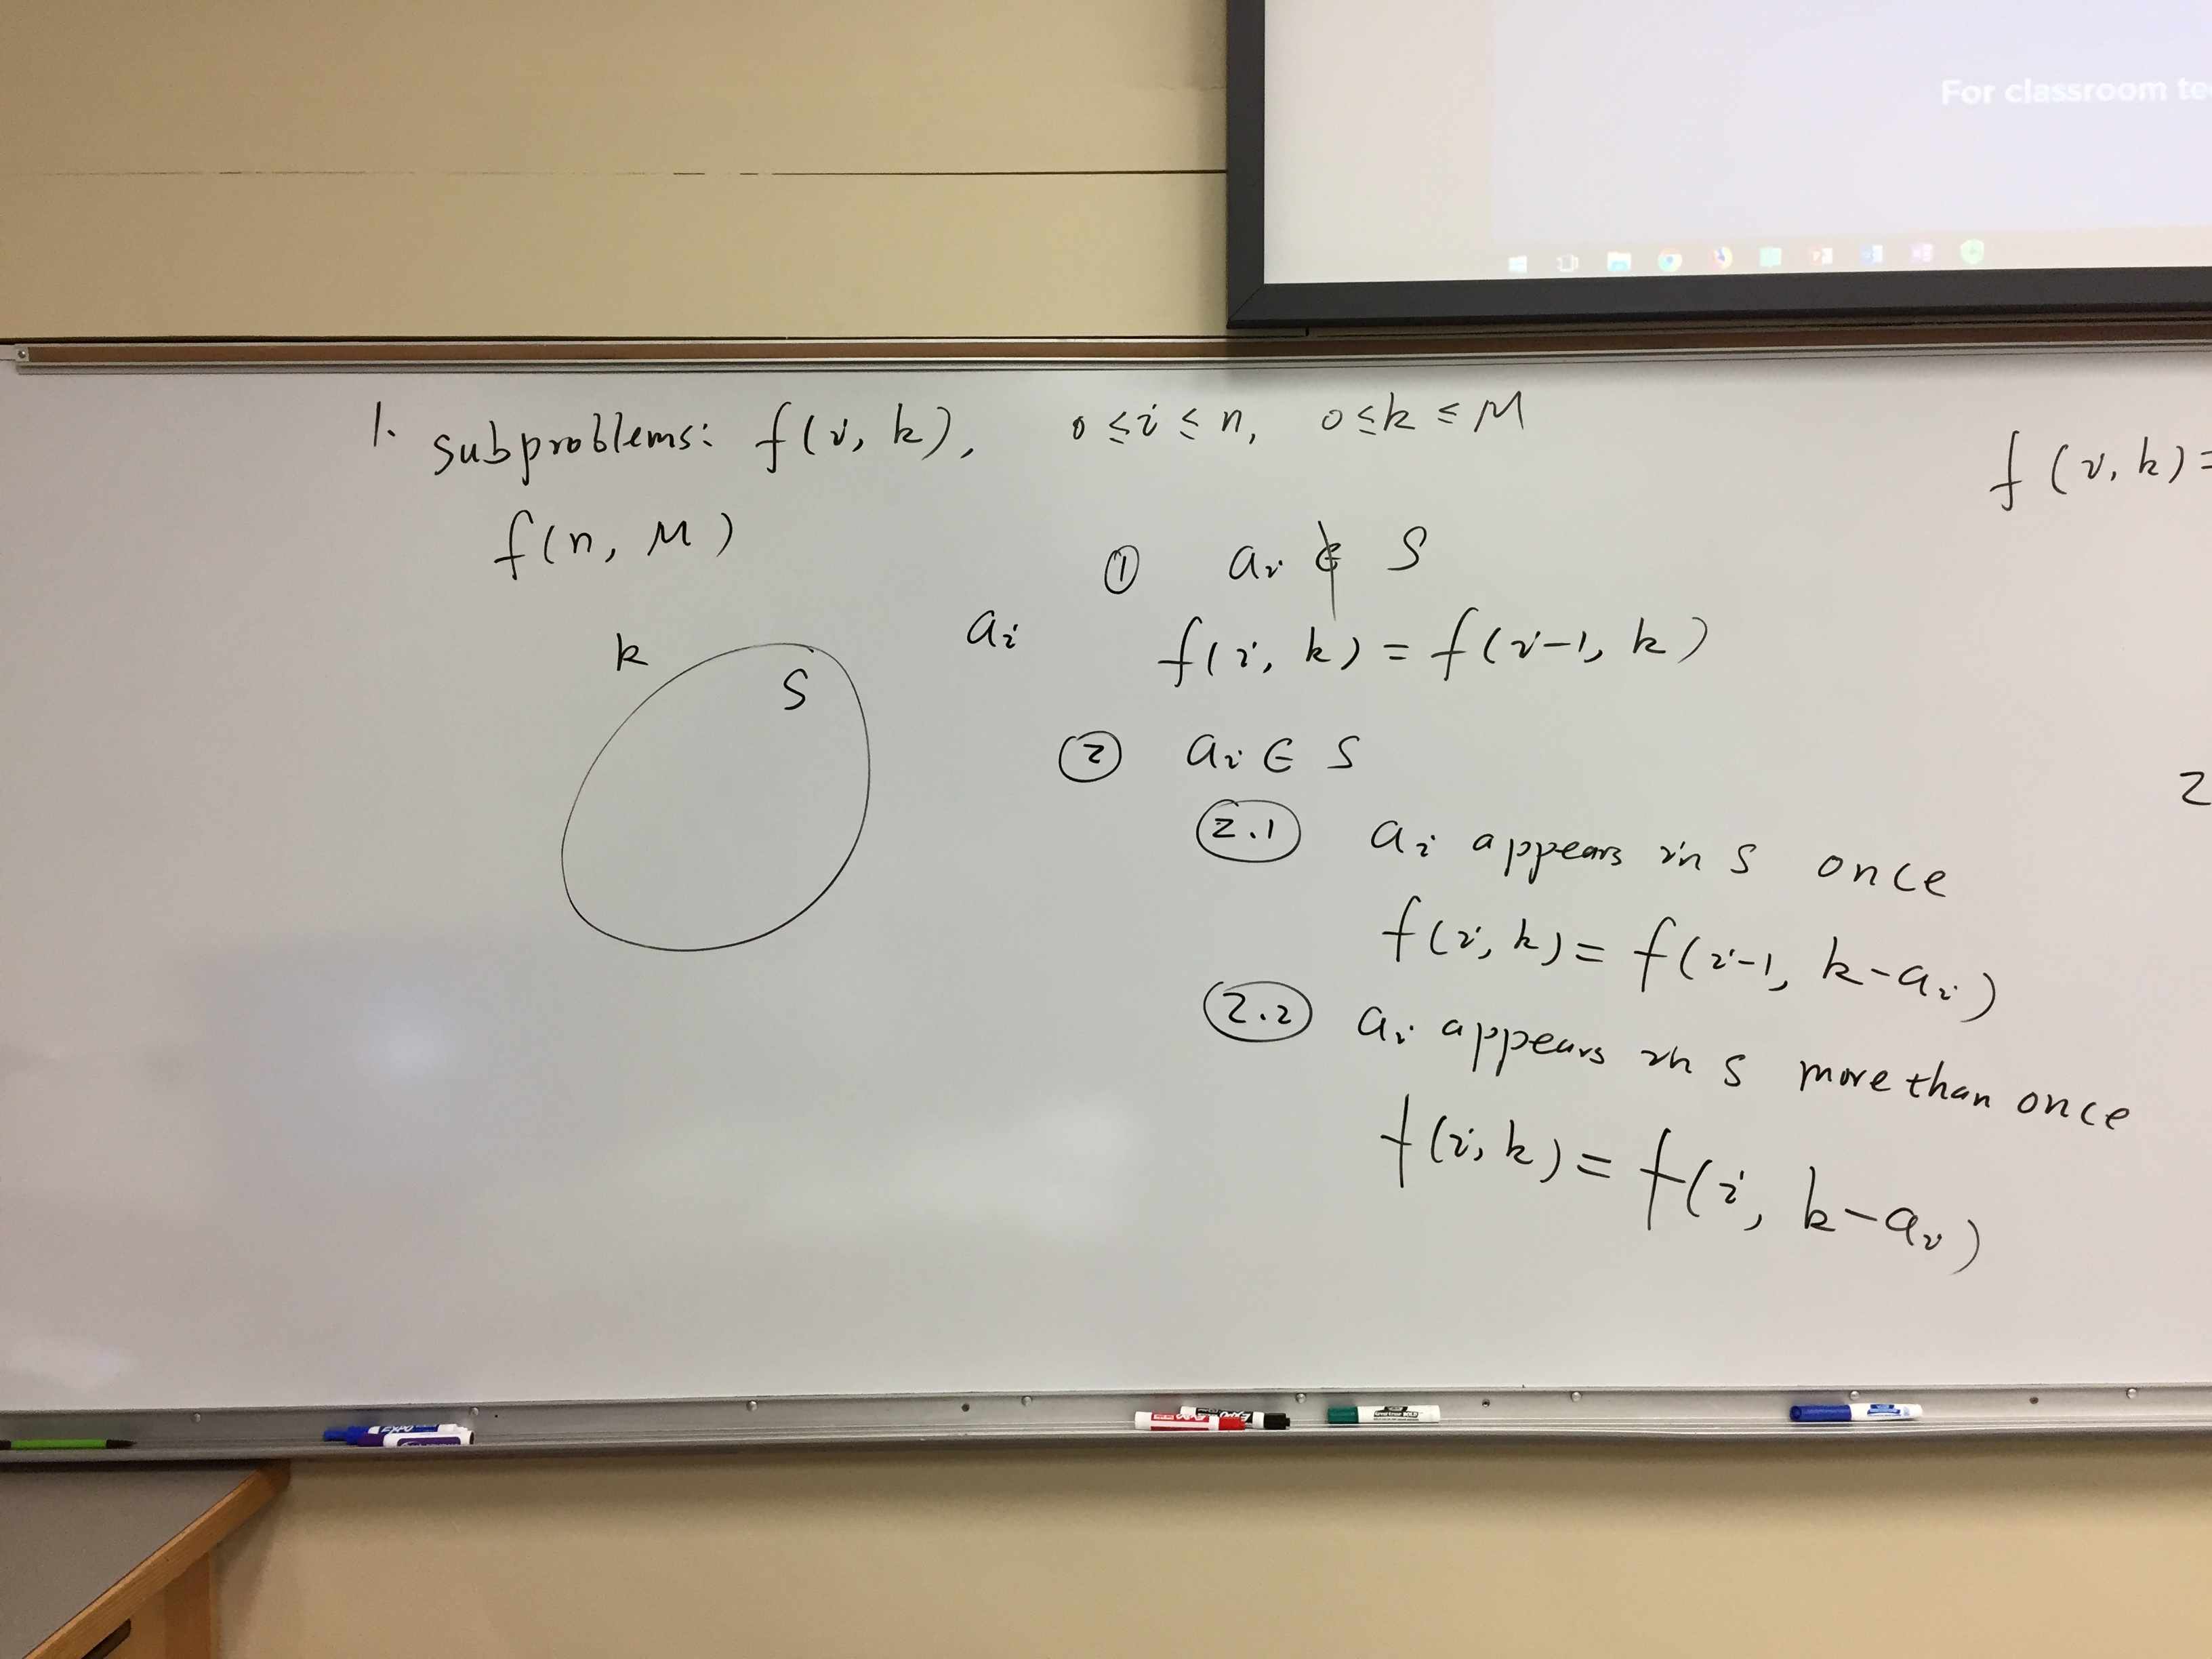 For classroom
1. subproblems: f(i, k), 0 ≤ i ≤ n, 0 ≤ k ≤ M
f(n, M)
k
S
a_i
① a_i ∉ S
f(i, k) = f(i-1, k)
② a_i ∈ S
2.1 a_i appears in S once
f(i, k) = f(i-1, k-a_i)
2.2 a_i appears in S more than once
f(i, k) = f(i, k-a_i)
f(i, k) =
2